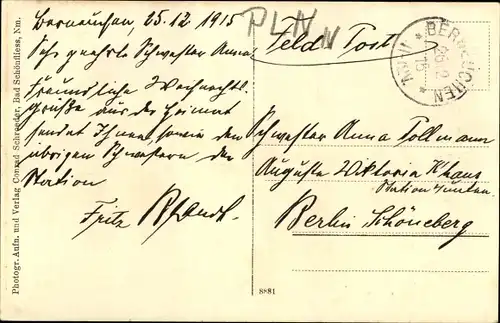 Berneuchen, 25.12.1915
Sehr geehrte Schwester Anna
Freundliche Weihnachts
Grüße aus der Heimat
sendet Ihnen, sowie den
übrigen Schwestern der
Station
Fritz
PLN
N
Feld Post
BERNEUCHEN
26.12
15
Schwester Anna Tollmann
Auguste Viktoria Khaus
Station
Berlin Schöneberg
8881
Photogr. Aufn. und Verlag Conrad Schroeder, Bad Schönfliess, Nm.